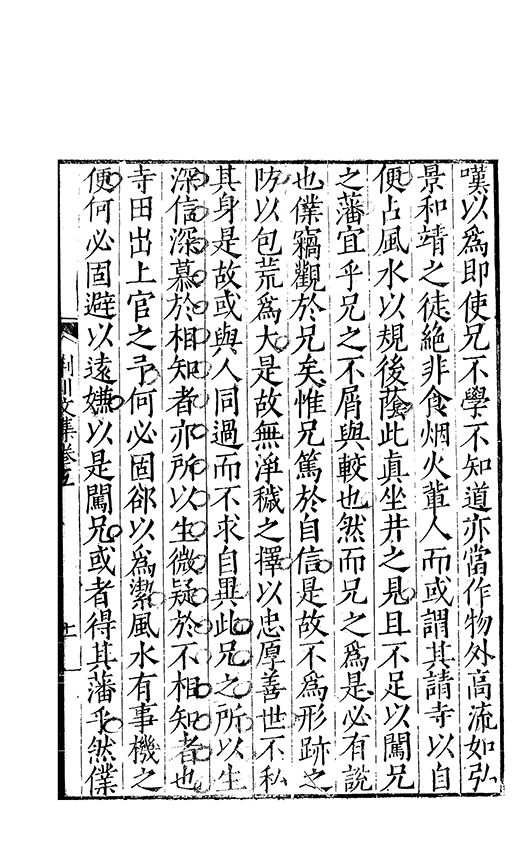 嘆以爲即使兄不學不知道亦當作物外高流如弘
景和靖之徒絶非食烟火軰人而或謂其請寺以自
便占風水以規後蔭此眞坐井之見且不足以闖兄
之藩宜乎兄之不屑與較也然而兄之爲是必有說
也僕竊觀於兄矣惟兄篤於自信是故不爲形跡之
防以包荒爲大是故無淨穢之擇以忠厚善世不私
其身是故或與人同過而不求自異此兄之所以生
深信深慕於相知者亦所以生微疑於不相知者也
寺田出上官之予何必固郤以爲潔風水有事機之
便何必固避以遠嫌以是闖兄或者得其藩乎然僕
荆川文集卷五
十一